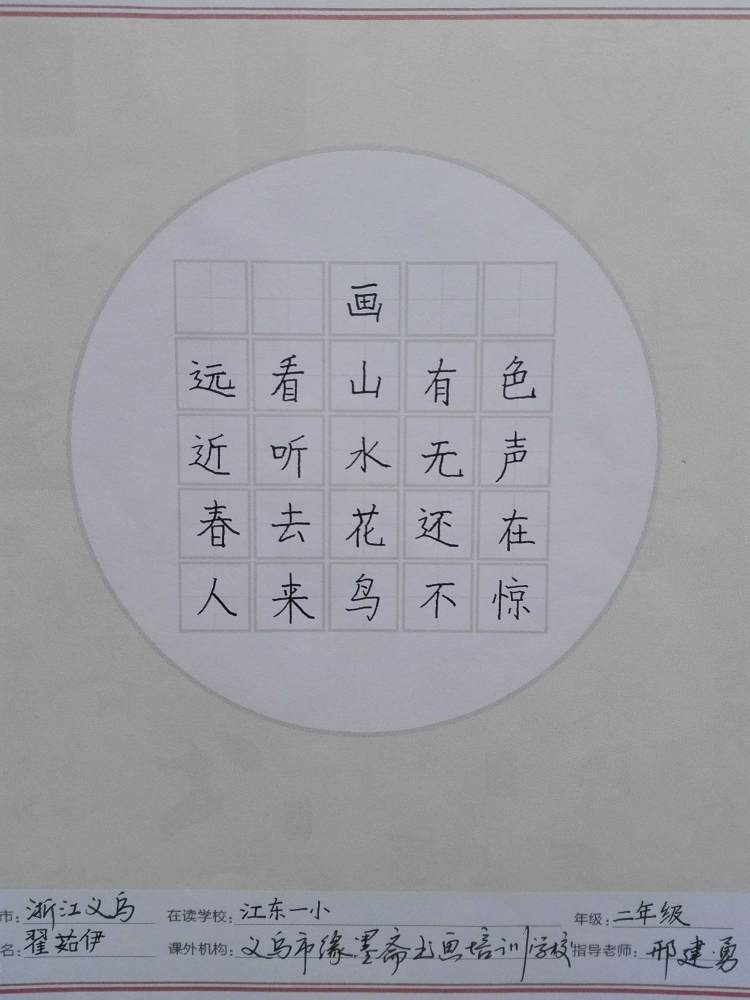 画
远看山有色
近听水无声
春去花还在
人来鸟不惊
市: 浙江义乌 在读学校: 江东一小 年级: 二年级
名: 翟茹伊 课外机构: 义乌市缘墨斋书画培训学校 指导老师: 邢建勇